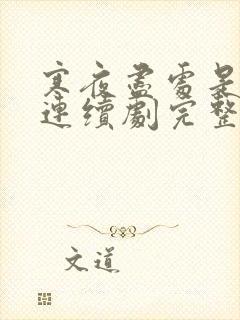 寒夜盡處是
連續劇完整
文道